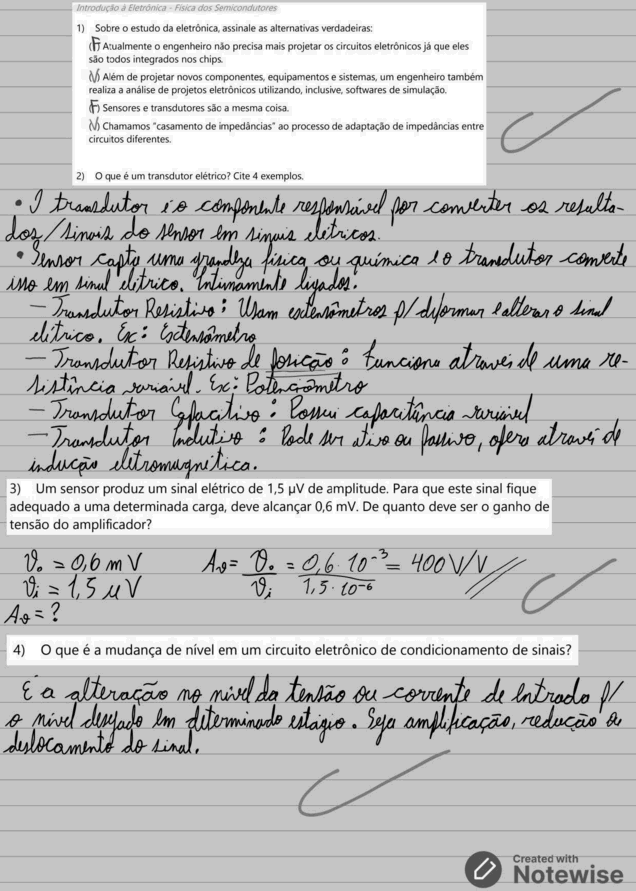 Introdução à Eletrônica - Física dos Semicondutores
1) Sobre o estudo da eletrônica, assinale as alternativas verdadeiras:
(F) Atualmente o engenheiro não precisa mais projetar os circuitos eletrônicos já que eles
são todos integrados nos chips.
(V) Além de projetar novos componentes, equipamentos e sistemas, um engenheiro também
realiza a análise de projetos eletrônicos utilizando, inclusive, softwares de simulação.
(F) Sensores e transdutores são a mesma coisa.
(V) Chamamos "casamento de impedâncias" ao processo de adaptação de impedâncias entre
circuitos diferentes.
2) O que é um transdutor elétrico? Cite 4 exemplos.
• O transdutor é o componente responsável por converter os resulta-
dos/sinais do sensor em sinais elétricos.
• Sensor capta uma grandeza física ou química e o transdutor converte
isso em sinal elétrico. Intimamente ligados.
- Transdutor Resistivo: Usam extensômetros p/ deformar e alterar o sinal
elétrico. Ex: Extensômetro
- Transdutor Resistivo de Posição: Funciona através de uma re-
sistência variável. Ex: Potenciômetro
- Transdutor Capacitivo: Possui capacitância variável
- Transdutor Indutivo: Pode ser ativo ou passivo, opera através de
indução eletromagnética.
3) Um sensor produz um sinal elétrico de 1,5 μV de amplitude. Para que este sinal fique
adequado a uma determinada carga, deve alcançar 0,6 mV. De quanto deve ser o ganho de
tensão do amplificador?
Vo = 0,6 mV Av = Vo/Vi = 0,6 · 10⁻³/1,5 · 10⁻⁶ = 400 V/V
Vi = 1,5 μV
Av = ?
4) O que é a mudança de nível em um circuito eletrônico de condicionamento de sinais?
É a alteração no nível da tensão ou corrente de entrada p/
o nível desejado em determinado estágio. Seja amplificação, redução ou
deslocamento do sinal.
Created with
Notewise